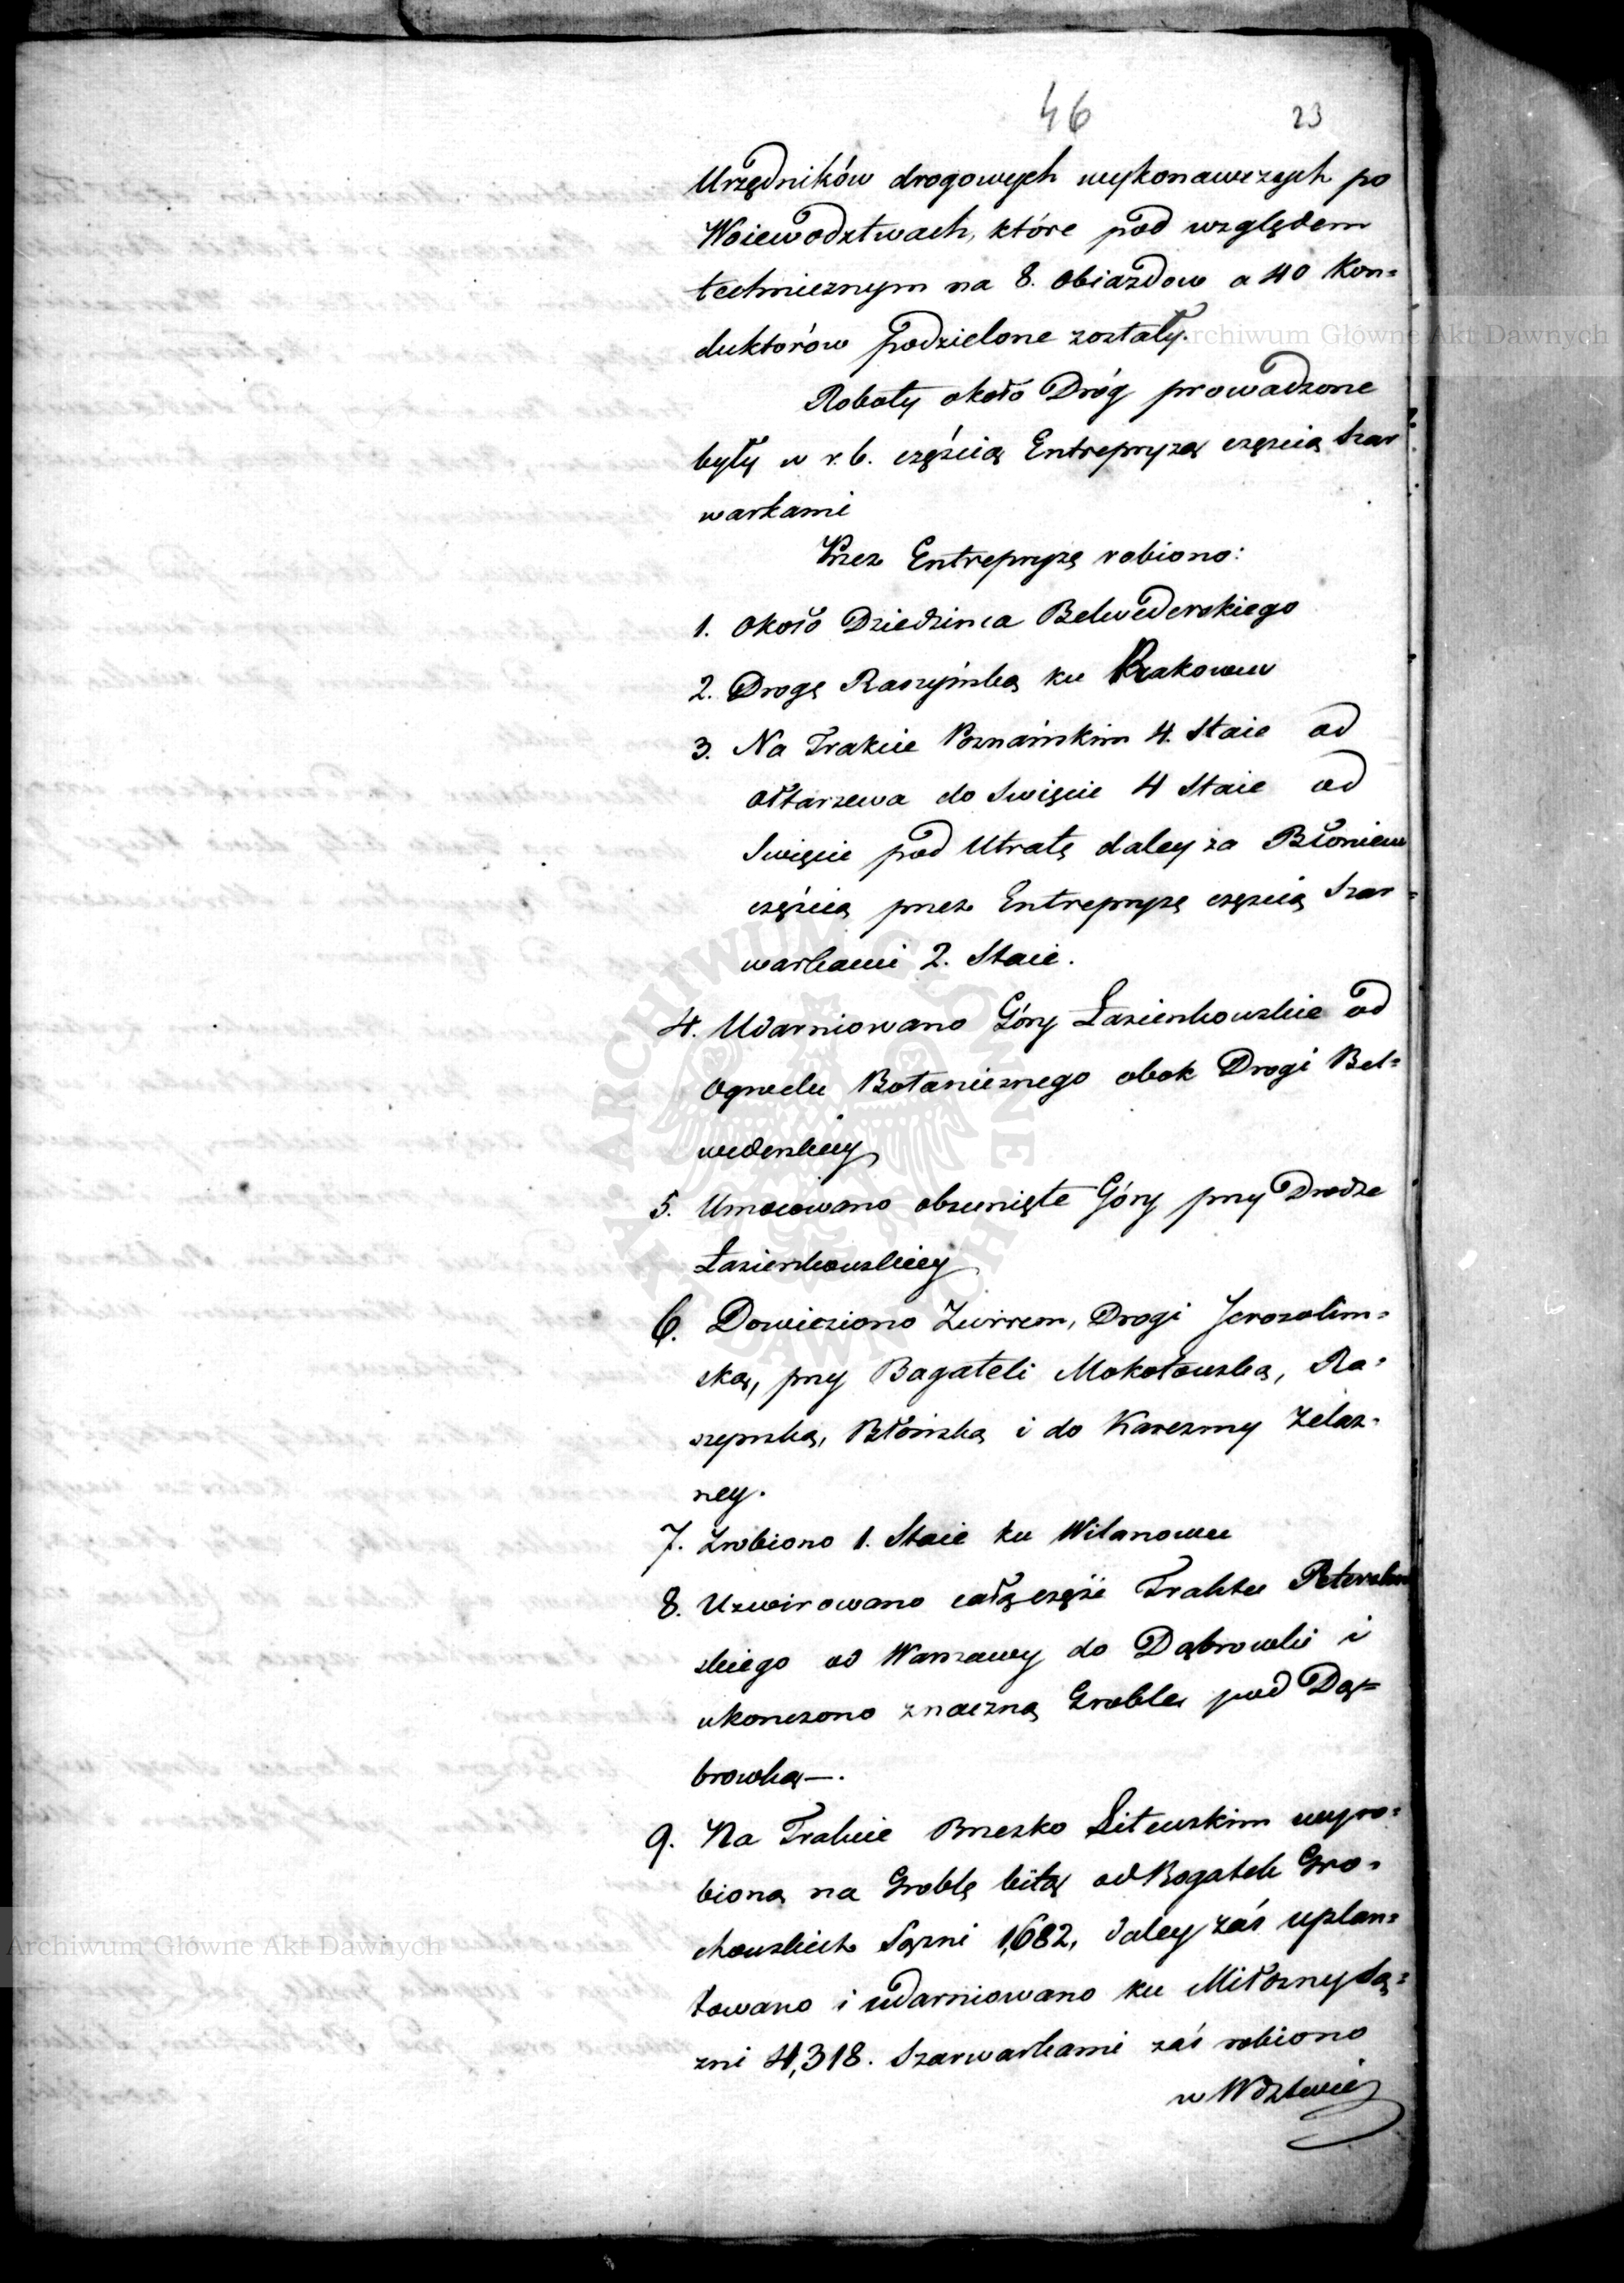 46 23
Urzędników drogowych wykonawczych po
Woiewodztwach, które pod względem
technicznym na 8. Obiazdow a 40 Kon=
duktorów podzielone zostały.
Roboty około Dróg prowadzone
były w r. b. częścią Entrepryzą częscią Szar
warkami
Przez Entrepryzę robiono:
1. Około Dziedzinca Belwederskiego
2. Drogę Raszyńską ku Krakowu
3. Na Trakcie Poznańskim 4. Staie od
Ołtarzewa do Swięcie 4 Staie od
Swięcie pod Utratę daley za Błoniem
częścią przez Entrepryzę częscią Szar=
warkami 2. Staie.
4. Udarniowano Góry Łazienkowskie od
Ogrodu Botanicznego obok Drogi Bel=
wederskiey
5. Umocowano obsunięte Góry przy Drodze
Łazienkowskiey
6. Dowieziono Zwirem, Drogi Jerozolim=
ską, przy Bagateli Mokotowską, Ra=
szynską, Błońską i do Karczmy Zelaz=
ney.
7. Zrobiono 1. Staie ku Wilanowu
8. Uzwirowano całą część Traktu Petersbur
skiego od Warszawy do Dąbrowki i
ukonczono znaczną Groblę pod Dą=
browką—.
9. Na Trakcie Brzesko Litewskim wyro=
biono na Groblę bitą od Rogatek Gro=
chowskich Sązni 1,682, daley zaś uplan=
towano i udarniowano ku Miłosney Są=
zni 4,318. Szarwarkami zaś robiono
w Wdztwie
Archiwum Główne Akt Dawnych
Archiwum Główne Akt Dawnych
ARCHIWUM GŁÓWNE AKT DAWNYCH